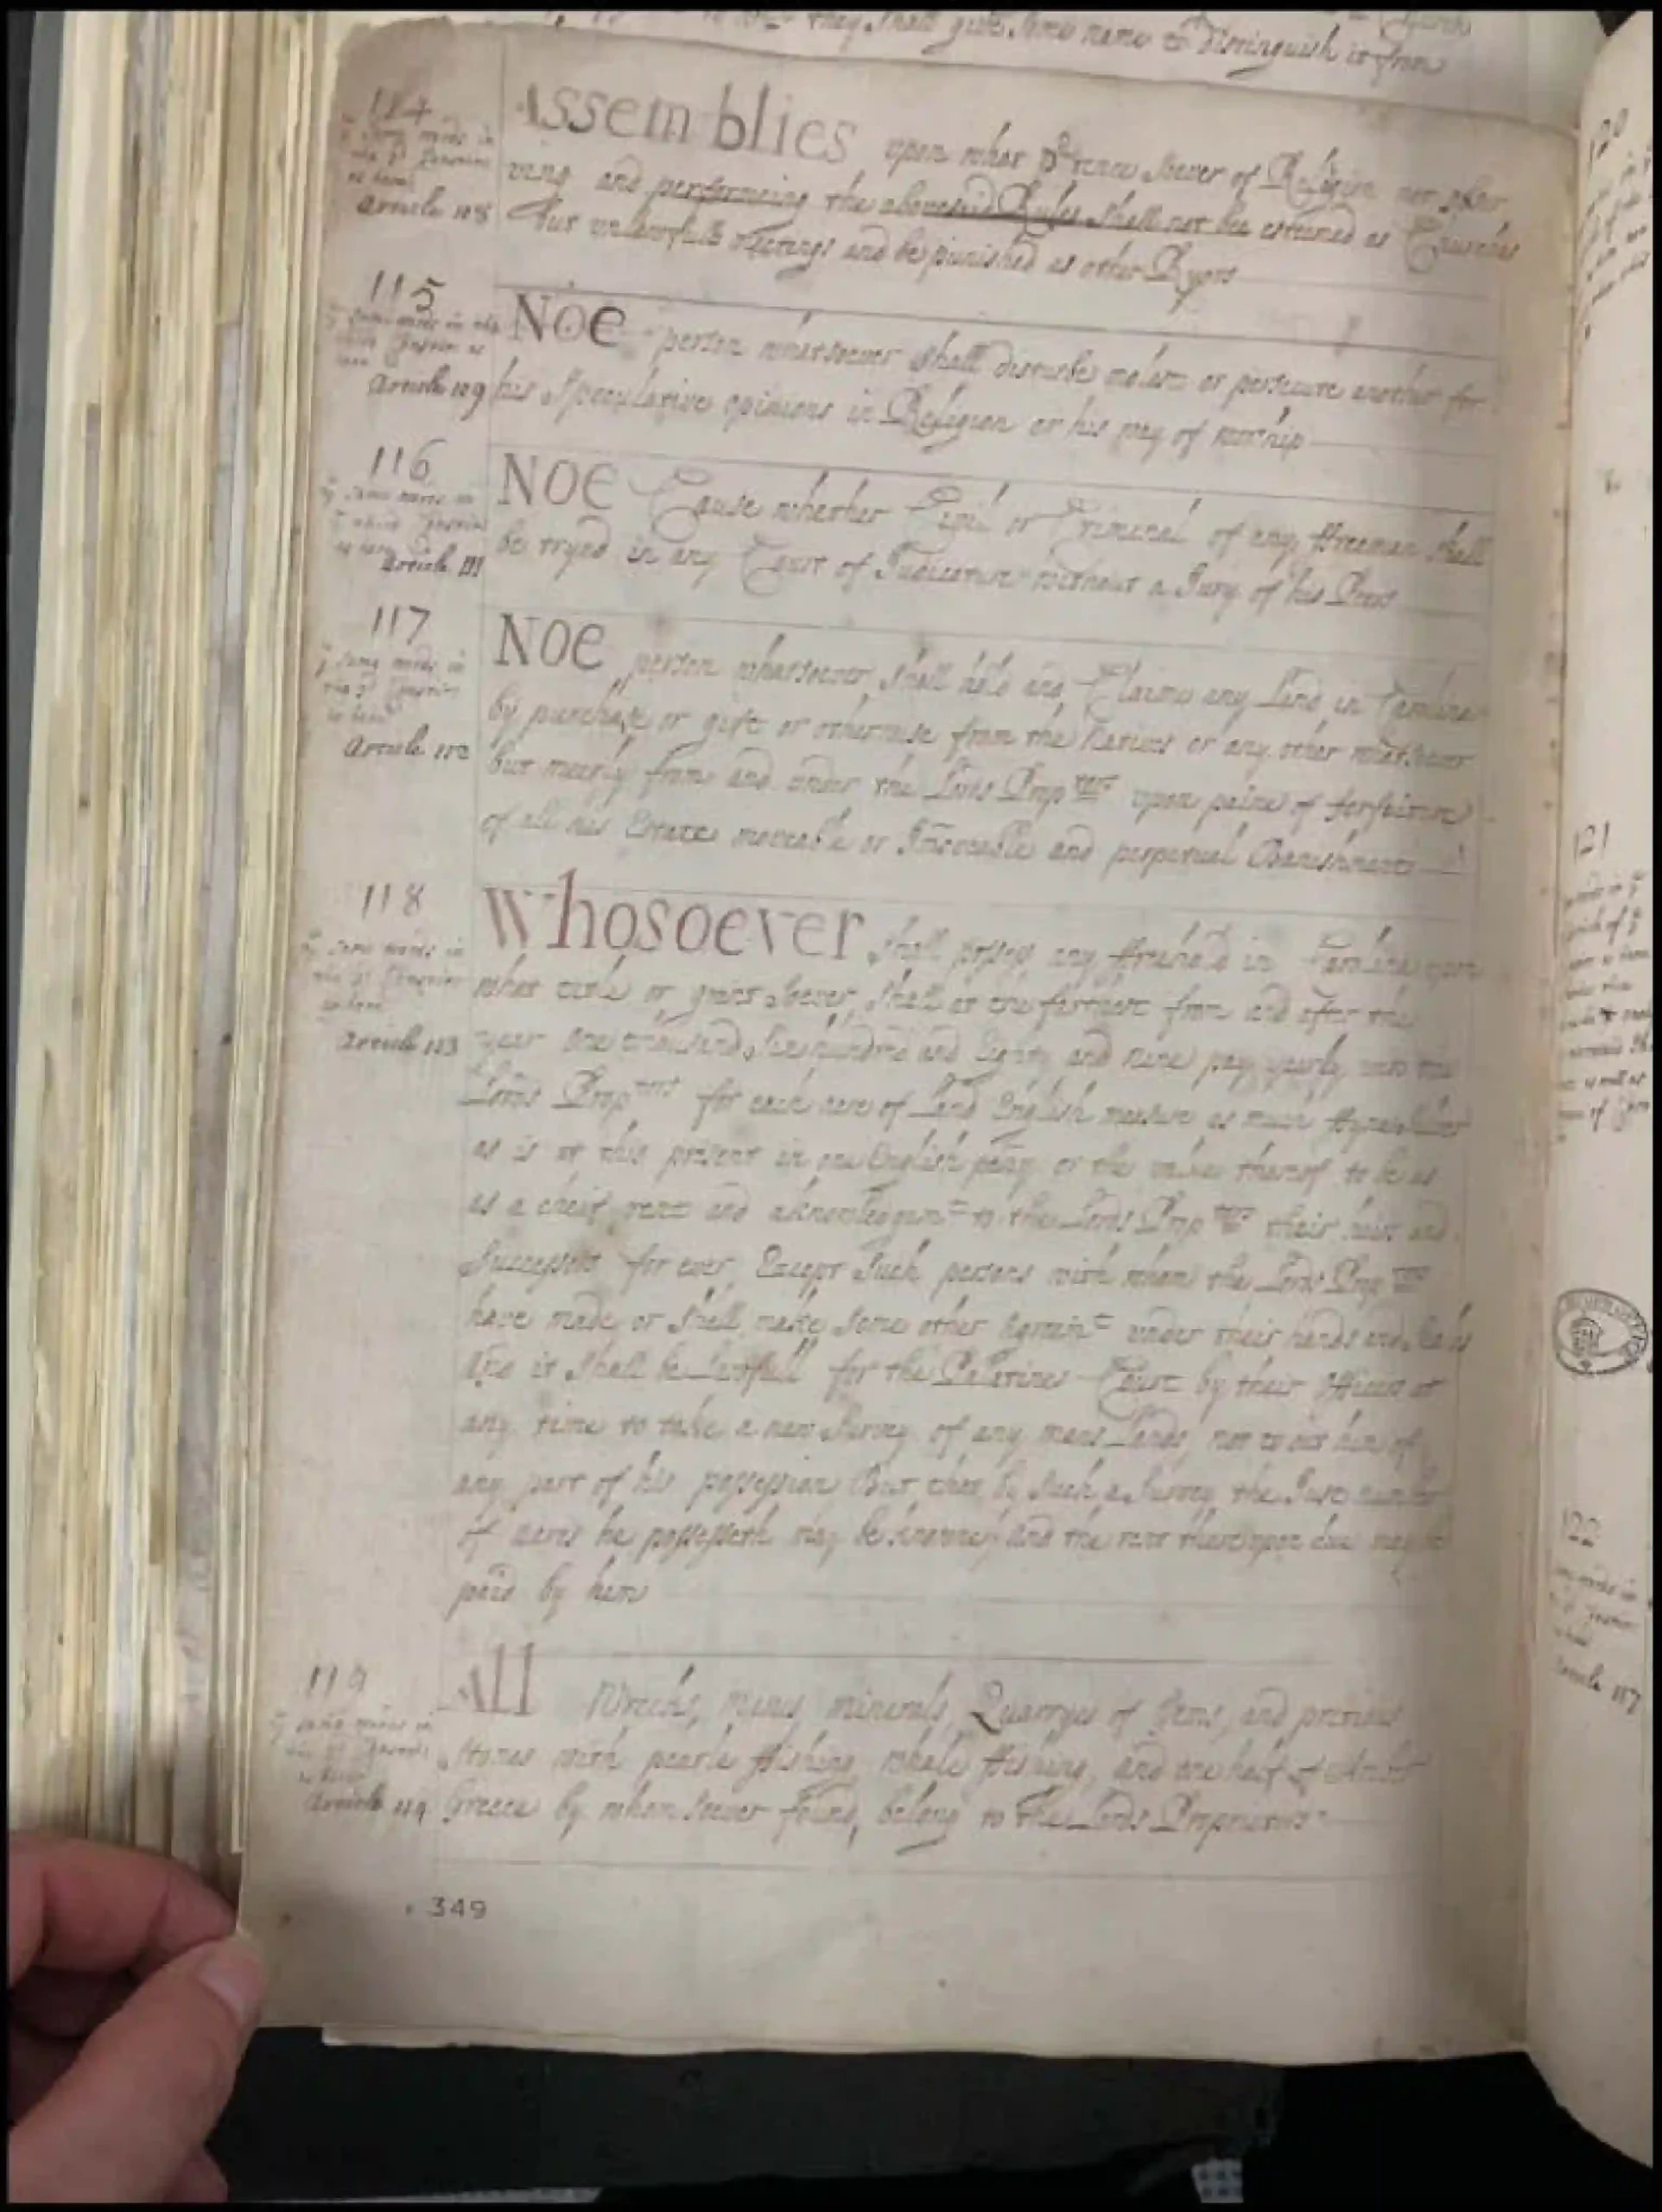 they shall give some name to distinguish it from
114
Assemblies upon what p^r^tence soever of Religion not obser
y^e^ same words in
ving and performeing the abovesaid Rules shall not bee esteemed as Churches
as here
Article 108
But unlawfull meetings and be punished as other Ryots
115
Noe person whatsoever shall disturbe molest or persecute another for
Article 109
his Speculative opinions in Religion or his way of worship
116
Noe Cause whether Civil or Criminal of any ffreeman shall
be tryed in any Court of Judicature without a Jury of his Peers
Article 111
117
Noe person whatsoever shall hold and Claime any Land in Carolina
y^e^ same words in
by purchase or gift or otherwise from the Natives or any other whatsoever
as here
Article 112
but meerly from and under the Lords Prop^rs^ upon paine of forfeiture
of all his Estate moveable or Im̄oveable and perpetual Banishment
118
Whosoever shall possess any ffreehold in Carolina upon
y^e^ same words in
what title or grant soever, shall at the farthest from and after the
as here
Article 113
year one thousand six hundred and Eighty and nine pay yearly unto the
Lords Prop^rs^ for each acre of Land English measure as much ffyne Silver
as is at this present in one English peny or the value thereof to be as
as a cheif rent and aknowledgem^t^ to the Lords Prop^rs^ their heirs and
Successors for ever, Except Such persons with whom the Lords Prop^rs^
have made or shall make some other Agreem^t^ under their hands and Seales
And it shall be lawfull for the Palatines Court by their Officers at
any time to take a new Survey of any mans Lands, not to out him of
any part of his possession But that by such a Survey the Just number
of acres he possesseth may be knowne, and the rent thereupon due may be
paid by him
119
All Wrecks, Mines, minerals, Quarryes of Gems, and pretious
y^e^ same words in
Stones with pearle ffishing, whale ffishing, and one halfe of Amber
Article 114
Greece by whom soever found, belong to the Lords Proprietors
349
120
121
122
Article 117